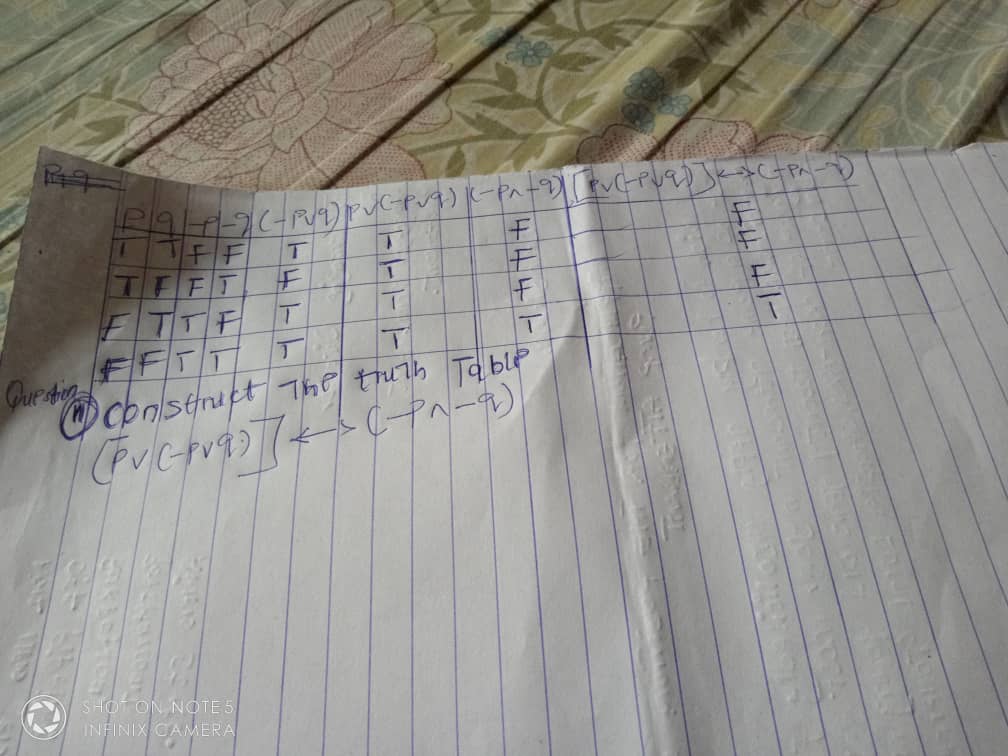 p q -p -q (-pvq) pv(-pvq) (-p^-q) [pv(-pvq)]<->(-p^-q)
T T F F T T F F
T F F T F T F F
F T T F T T F F
F F T T T T T T
Question
(ii) construct The truth Table
[pv(-pvq)] <-> (-p^-q)
SHOT ON NOTE 5
INFINIX CAMERA